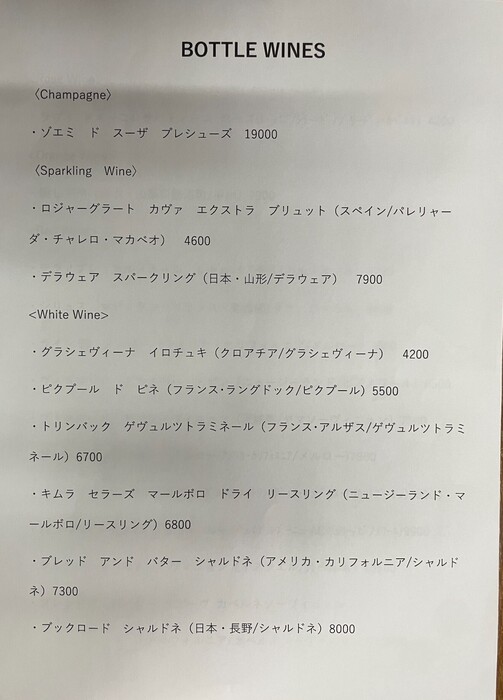 BOTTLE WINES
〈Champagne〉
・ゾエミ　ド　スーザ　プレシューズ　19000
〈Sparkling　Wine〉
・ロジャーグラート　カヴァ　エクストラ　ブリュット（スペイン/パレリャー
ダ・チャレロ・マカベオ）　4600
・デラウェア　スパークリング（日本・山形/デラウェア）　7900
<White Wine>
・グラシェヴィーナ　イロチュキ（クロアチア/グラシェヴィーナ）　4200
・ピクプール　ド　ピネ（フランス・ラングドック/ピクプール）5500
・トリンバック　ゲヴュルツトラミネール（フランス・アルザス/ゲヴュルツトラミ
ネール）6700
・キムラ　セラーズ　マールボロ　ドライ　リースリング（ニュージーランド・マ
ールボロ/リースリング）6800
・ブレッド　アンド　バター　シャルドネ（アメリカ・カリフォルニア/シャルド
ネ）7300
・ブックロード　シャルドネ（日本・長野/シャルドネ）8000